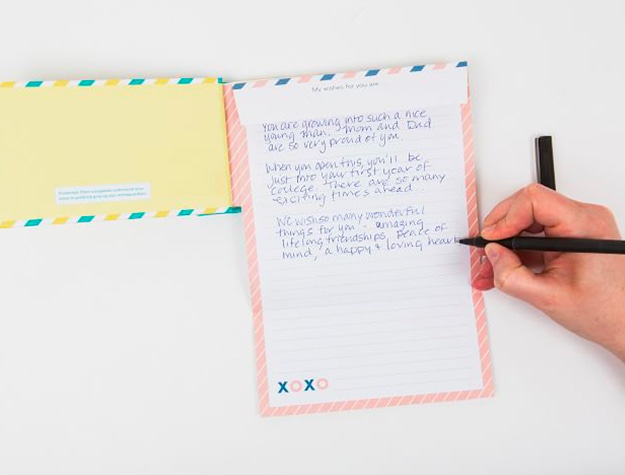 My wishes for you are
You are growing into such a nice
young man. Mom and Dad
are so very proud of you.
When you open this, you'll be
just into your first year of
college. There are so many
exciting times ahead.
We wish so many wonderful
things for you - amazing
lifelong friendships, peace of
mind, a happy & loving heart
XOXO